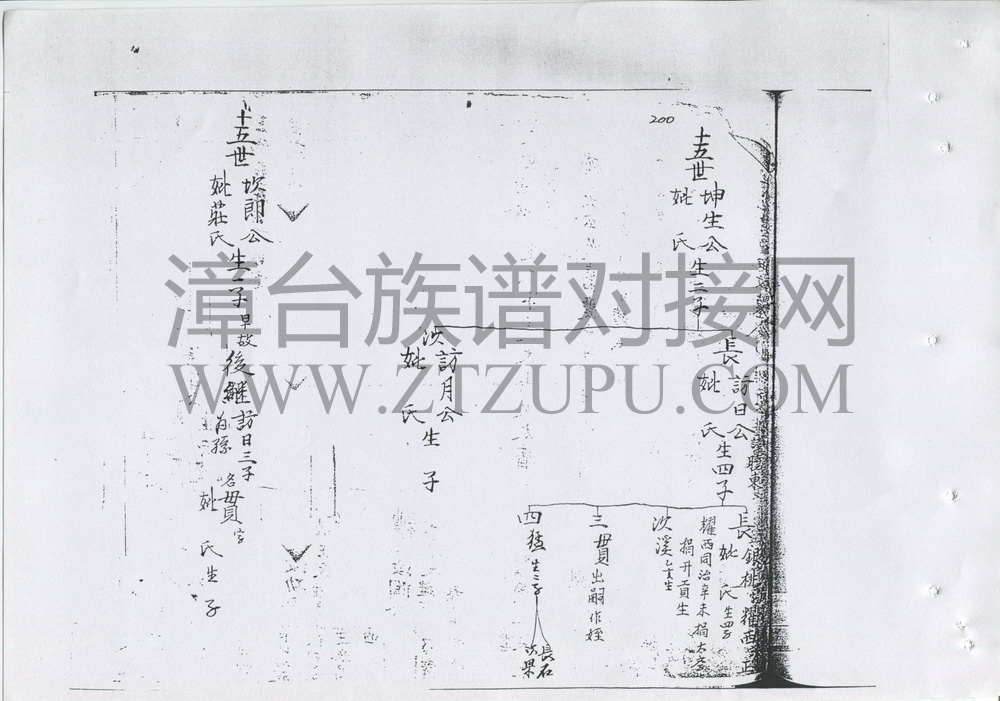 200
十五世
坤生公生二子
妣 氏
長訪日公
妣 氏生四子
次訪月公
妣 氏生 子
長銀桃
妣 氏生四子
耀西同治辛未捐
捐升貢生
次溪
三貫出嗣作姪
四猛生二子
長石
次果
十五世
坎郎公
妣莊氏生一子早故後繼訪日三子
為孫名貫字
妣 氏生子
漳台族谱对接网
WWW.ZTZUPU.COM